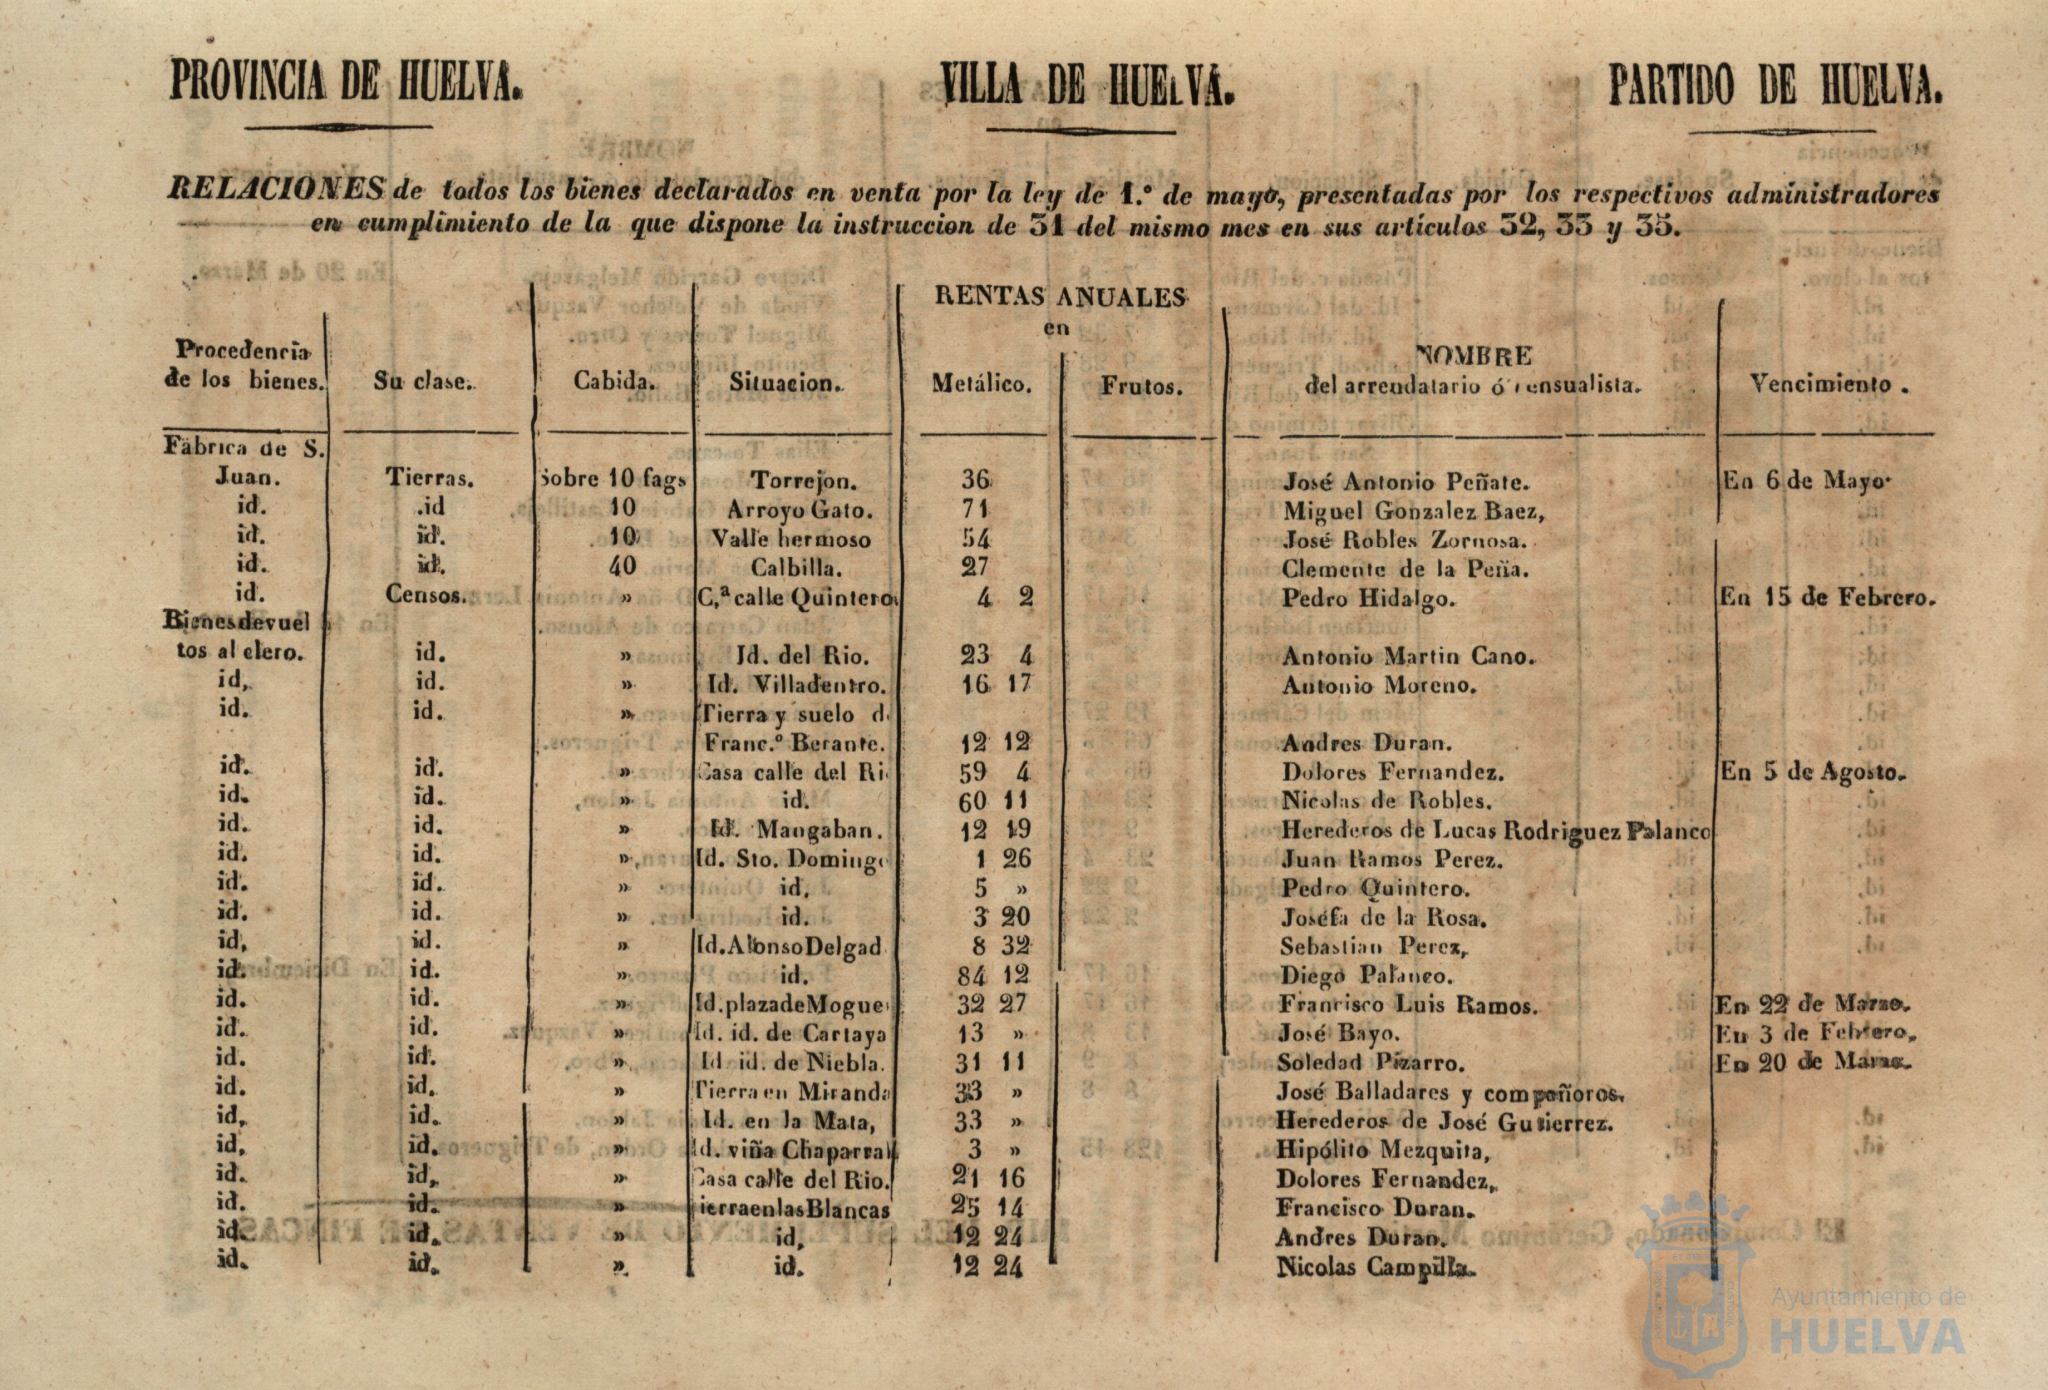 PROVINCIA DE HUELVA. VILLA DE HUELVA. PARTIDO DE HUELVA.
RELACIONES de todos los bienes declarados en venta por la ley de 1.º de mayo, presentadas por los respectivos administradores
en cumplimiento de la que dispone la instruccion de 31 del mismo mes en sus artículos 32, 33 y 35.
RENTAS ANUALES
en
Procedencia de los bienes. Su clase. Cabida. Situacion. Metálico. Frutos. NOMBRE del arrendatario ó censualista. Vencimiento.
Fábrica de S.
Juan. Tierras. Sobre 10 fags Torrejon. 36 José Antonio Peñate. En 6 de Mayo
id. .id 10 Arroyo Gato. 71 Miguel Gonzalez Baez,
id. id. 10 Valle hermoso 54 José Robles Zornosa.
id. id. 40 Calbilla. 27 Clemente de la Peña.
id. Censos. » C,ª calle Quintero 4 2 Pedro Hidalgo. En 15 de Febrero.
Bienes devuel
tos al clero. id. » Id. del Rio. 23 4 Antonio Martin Cano.
id, id. » Id. Villadentro. 16 17 Antonio Moreno.
id. id. » Tierra y suelo d
Franc.º Berante. 12 12 Andres Duran.
id. id. » Casa calle del Ri 59 4 Dolores Fernandez. En 5 de Agosto.
id. id. » id. 60 11 Nicolas de Robles.
id. id. » Id. Mangaban. 12 19 Herederos de Lucas Rodriguez Palanco
id. id. » Id. Sto. Doming 1 26 Juan Ramos Perez.
id. id. » id. 5 » Pedro Quintero.
id. id. » id. 3 20 Joséfa de la Rosa.
id, id. » Id. Alonso Delgad 8 32 Sebastian Perez,
id. id. » id. 84 12 Diego Palanco.
id. id. » Id. plaza de Mogue 32 27 Francisco Luis Ramos. En 22 de Marzo.
id. id. » Id. id. de Cartaya 13 » José Bayo. En 3 de Febrero,
id. id. » Id id. de Niebla. 31 11 Soledad Pizarro. En 20 de Marzo.
id. id, » Tierra en Miranda 33 » José Balladares y compoñoros.
id, id. » Id. en la Mata, 33 » Herederos de José Gutierrez.
id, id. » Id. viña Chaparral 3 » Hipólito Mezquita,
id. id, » Casa calle del Rio. 21 16 Dolores Fernandez,
id. id. » ierra en las Blancas 25 14 Francisco Duran.
id. id. » id, 12 24 Andres Duran.
id. id. » id. 12 24 Nicolas Campilla.
Ayuntamiento de
HUELVA